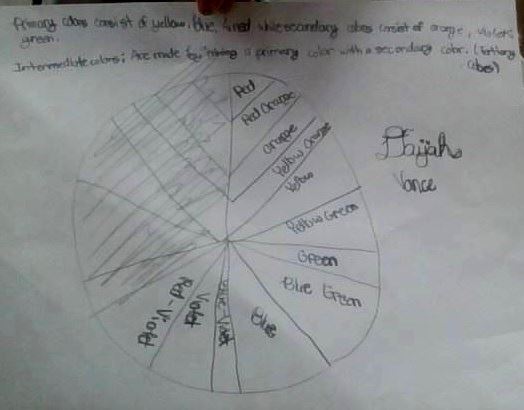 Primary colors consist of yellow, blue, & red while secondary colors consist of orange, violet &
green.
Intermediate colors: Are made by mixing a primary color with a secondary color. (Tertiary
colors)
Red
Red Orange
Orange
Yellow Orange
Yellow
Yellow Green
Green
Blue Green
Blue
Blue-Violet
Violet
Red-Violet
Vance